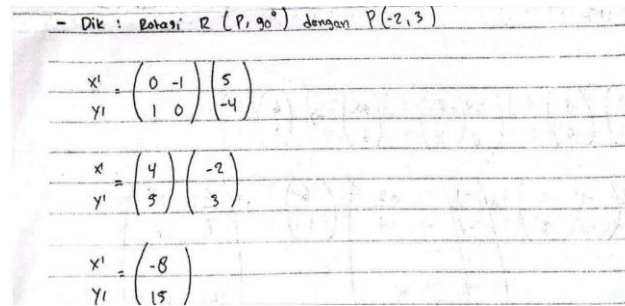 - Dik : Rotasi R (P, 90°) dengan P(-2,3)
x' y' = (0 -1 1 0) (5 -4)
x' y' = (4 5) (-2 3)
x' y' = (-8 15)